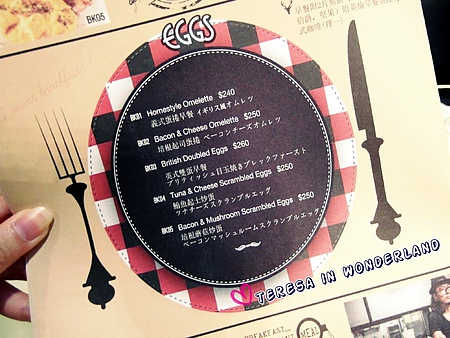 BK05
EGGS
早餐附2片
式咖啡(擇一)
BK01 Homestyle Omelette $240
義式蛋捲早餐 イギリス風オムレツ
BK02 Bacon & Cheese Omelette $250
培根起司蛋捲 ベーコンチーズオムレツ
BK03 British Doubled Eggs $260
英式雙蛋早餐
ブリティッシュ目玉焼きブレックファースト
BK04 Tuna & Cheese Scrambled Eggs $250
鮪魚起士炒蛋
ツナチーズスクランブルエッグ
BK05 Bacon & Mushroom Scrambled Eggs $250
培根蘑菇炒蛋
ベーコンマッシュルームスクランブルエッグ
TERESA IN WONDERLAND
BREAKFAST
MEAL